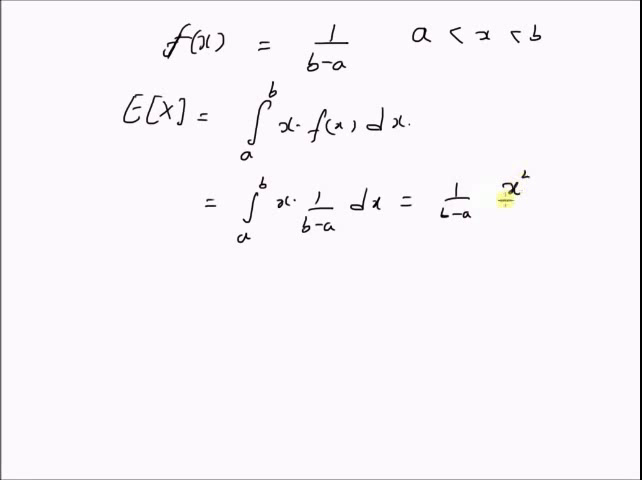 f(x) = 1/(b-a) a < x < b
E[X] = ∫_a^b x. f(x) dx.
= ∫_a^b x. 1/(b-a) dx = 1/(b-a) x²